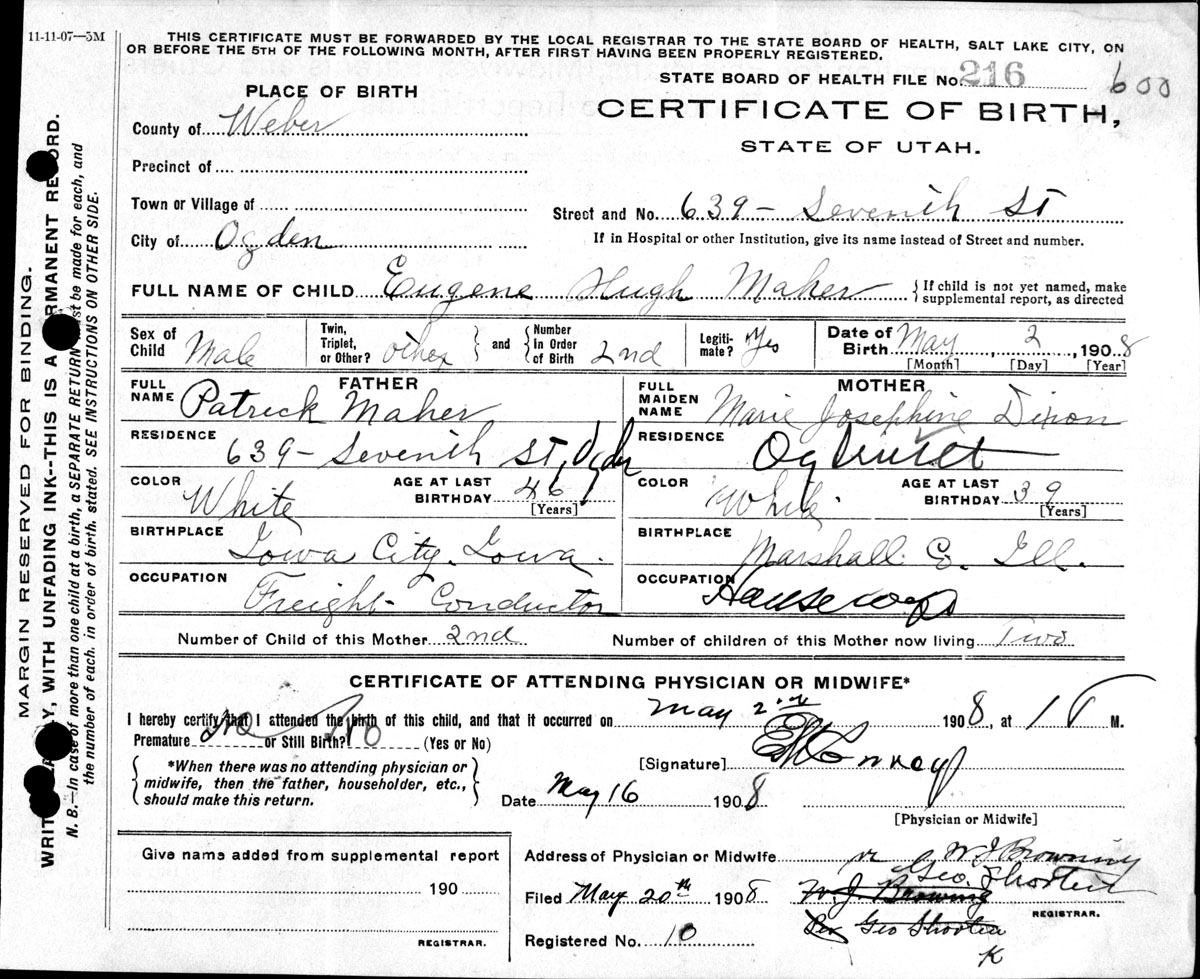 11-11-07—3M
THIS CERTIFICATE MUST BE FORWARDED BY THE LOCAL REGISTRAR TO THE STATE BOARD OF HEALTH, SALT LAKE CITY, ON
OR BEFORE THE 5TH OF THE FOLLOWING MONTH, AFTER FIRST HAVING BEEN PROPERLY REGISTERED.
STATE BOARD OF HEALTH FILE No. 216 600
PLACE OF BIRTH
CERTIFICATE OF BIRTH,
STATE OF UTAH.
County of Weber
Precinct of
Town or Village of
Street and No. 639 - Seventh St
City of Ogden
If in Hospital or other Institution, give its name instead of Street and number.
FULL NAME OF CHILD Eugene Hugh Maher { If child is not yet named, make supplemental report, as directed
Sex of Child Male Twin, Triplet, or Other? other } and { Number In Order of Birth 2nd Legitimate? Yes Date of Birth May, 2, 1908
[Month] [Day] [Year]
FATHER
FULL NAME Patrick Maher
RESIDENCE 639 - Seventh St, Ogden
COLOR White AGE AT LAST BIRTHDAY 46 [Years]
BIRTHPLACE Iowa City. Iowa.
OCCUPATION Freight - Conductor
MOTHER
FULL MAIDEN NAME Marie Josephine Dixon
RESIDENCE
COLOR White AGE AT LAST BIRTHDAY 39 [Years]
BIRTHPLACE Marshall Co. Ill.
OCCUPATION
Number of Child of this Mother 2nd Number of children of this Mother now living Two
CERTIFICATE OF ATTENDING PHYSICIAN OR MIDWIFE*
I hereby certify that I attended the birth of this child, and that it occurred on May 2 1908, at 1 P M.
Premature No or Still Birth? No (Yes or No)
{ *When there was no attending physician or midwife, then the father, householder, etc., should make this return. }
[Signature]
Date May 16 1908
[Physician or Midwife]
Give name added from supplemental report
190
REGISTRAR.
Address of Physician or Midwife
W J Browning
Geo. Shorten
Filed May 20th 1908 W. J. Browning
REGISTRAR.
Registered No. 10 Geo Shorten
K
MARGIN RESERVED FOR BINDING.
WRITE PLAINLY, WITH UNFADING INK--THIS IS A PERMANENT RECORD.
N. B.—In case of more than one child at a birth, a SEPARATE RETURN must be made for each, and
the number of each, in order of birth, stated. SEE INSTRUCTIONS ON OTHER SIDE.